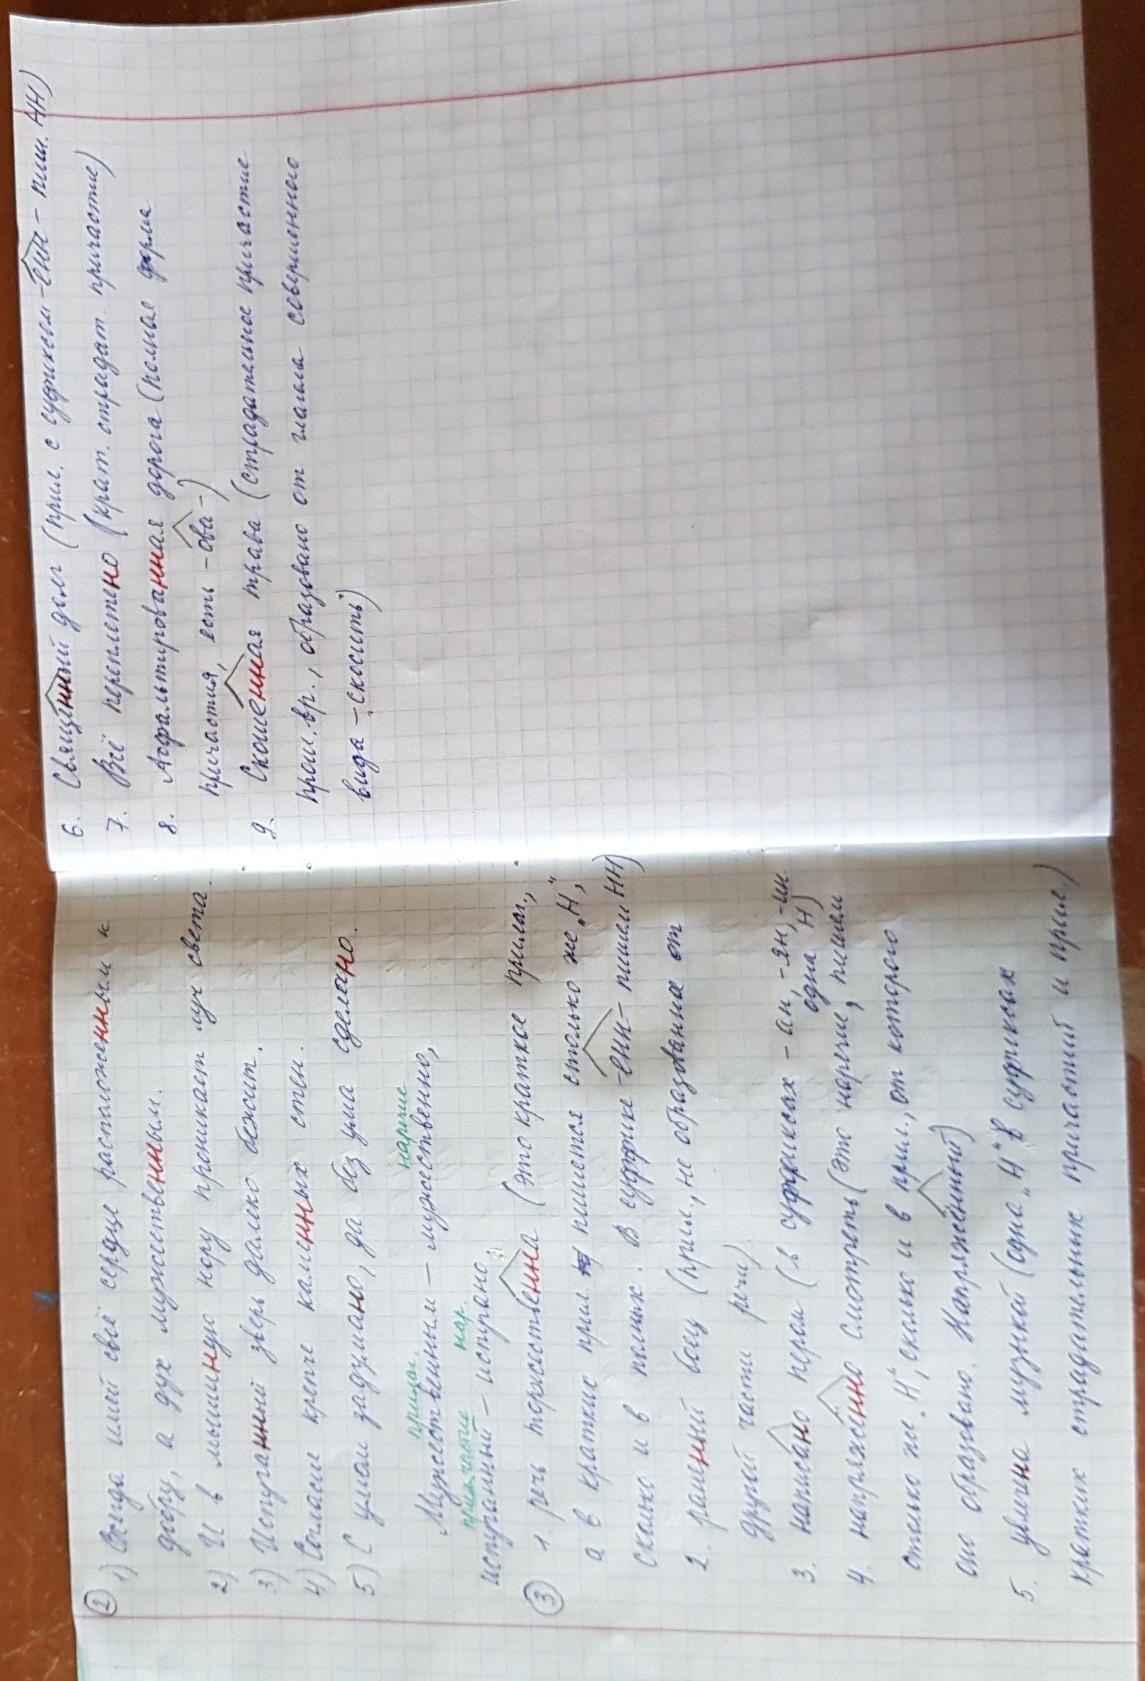 ② 1) Всегда имей своё сердце расположенным к
добру, а дух мужественным.
2) И в мышиную нору проникает луч света.
3) Испуганный зверь далеко бежит.
4) Согласие крепче каменных стен.
5) С умом задумано, да без ума сделано.
прилаг. наречие
Мужественным – мужественно,
причастие нар.
испуганный – испугано.
③ 1. речь торжественна (это краткое прилаг.,
а в кратких прил. пишется столько же „Н",
сколько и в полных. В суффиксе -енн- пишем НН)
2. ранний овощ (прил., не образованное от
другой части речи)
3. написано пером (в суффиксах -ан, -ян, -ин
одна Н)
4. напряжённо смотреть (это наречие, пишем
столько же „Н", сколько и в прил., от которого
оно образовано. Напряжённый)
5. увлечена музыкой (одна „Н" в суффиксах
кратких страдательных причастий и прил.)
6. Священный долг (прил. с суфиксом -енн- пиш. НН)
7. Всё переплетено (крат. страдат. причастие)
8. Асфальтированная дорога (полная форма
причастия, есть -ова-)
9. Скошенная трава (страдательное причастие
прош. вр., образовано от глагола совершенного
вида – „скосить")